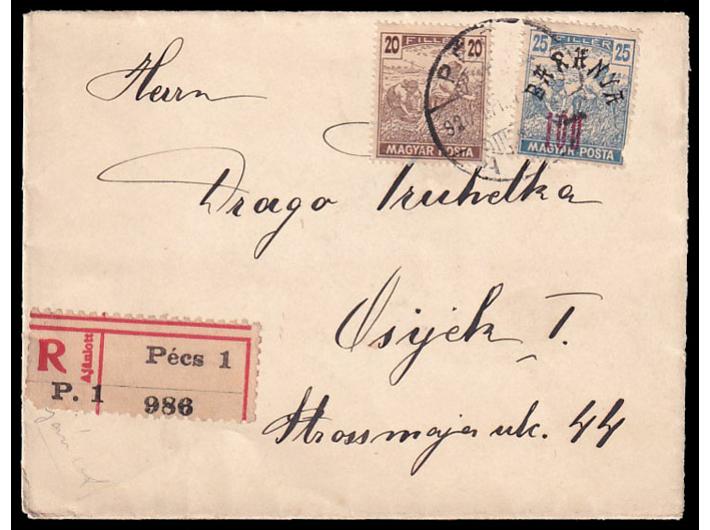 20 FILLÉR 20
MAGYAR POSTA
25 FILLÉR 25
BARANYA
100
MAGYAR POSTA
Herrn
Drago Truhelka
Osijek I.
Strossmajer ulc. 44
R Ajánlott
Pécs 1
P. 1
986